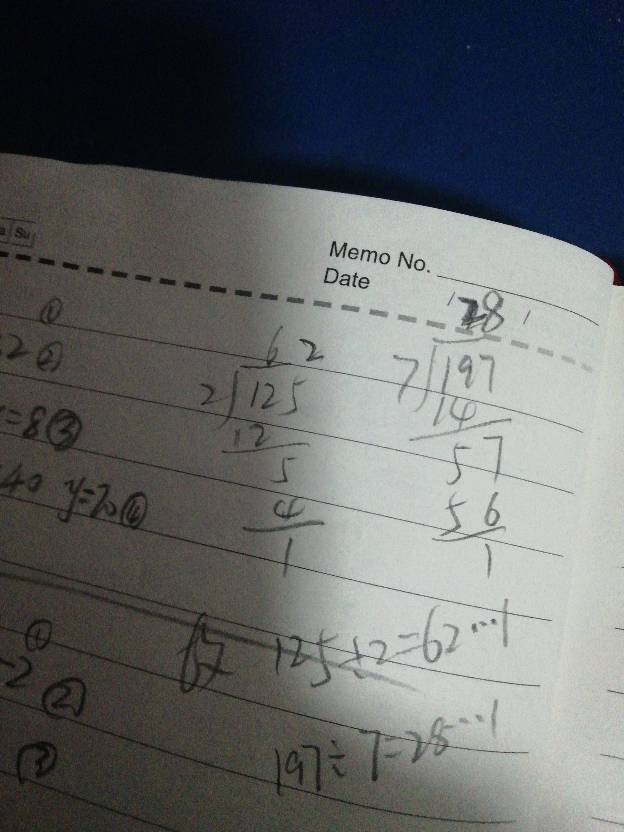 Su
Memo No.
Date
①
2②
=8③
40 y=20④
62
2)125
12
5
4
1
28
7)197
14
57
56
1
125÷2=62…1
197÷7=28…1
①
-2
②
③